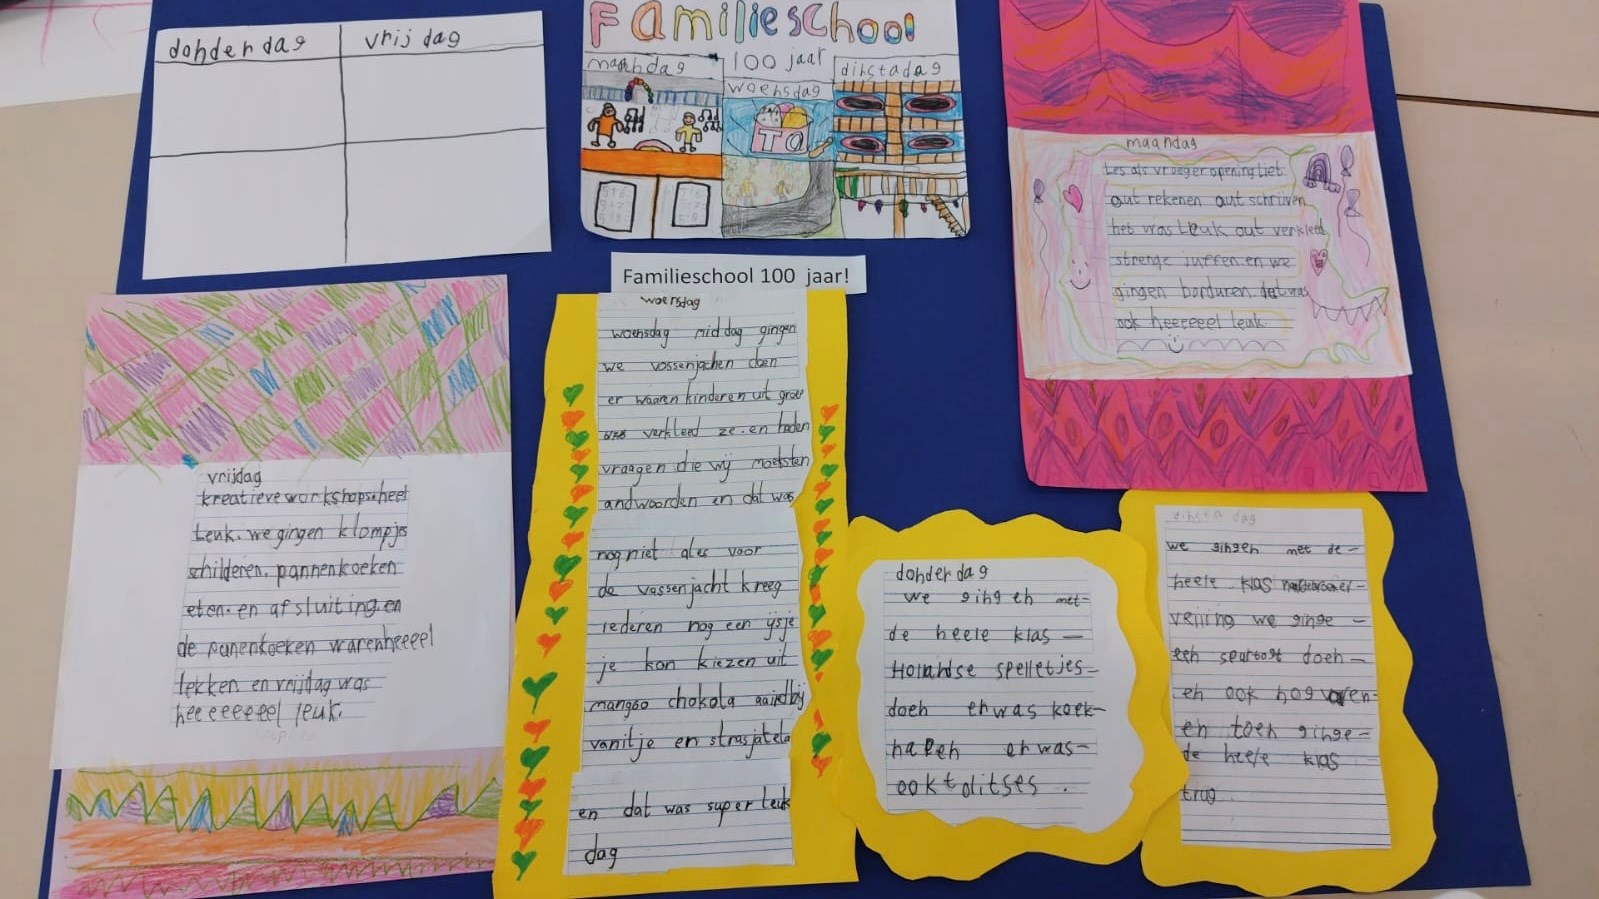 donderdag
vrijdag
Familieschool
maandag
100 jaar
dinstadag
woensdag
Ta
Familieschool 100 jaar!
maandag
Les als vroeger opening liet
out rekenen out schrijven
heb was Leuk out verkleed
strenge juffen en we
gingen borduren dat was
ook heeeeeel leuk
woensdag
woensdag middag gingen
we vossenjachen doen
er waaren kinderen uit groep
verkleed ze en haden
vraagen die wij moetsten
andwoorden en dat was
nog niet ales voor
de vossenjacht kreeg
iederen nog een ijsje
je kon kiezen uit
mangoo chokola aardbij
vanitje en strasjatela
en dat was super leuk
dag
vrijdag
kreatieve workshops.heel
Leuk. we gingen klompjs
schilderen. pannenkoeken
eten. en afsluiting. en
de panenkoeken waren heeeel
lekken en vrijdag was
heeeeeeeel leuk.
donderdag
we gingen met
de heele klas
Hollandse spelletjes
doen er was koek
hapen er was
ook tolitses.
dinsta dag
we gingen met de
heele klas
we ginge
een spurtort doen
en ook nog varen
en toen ginge
de heele klas
trug